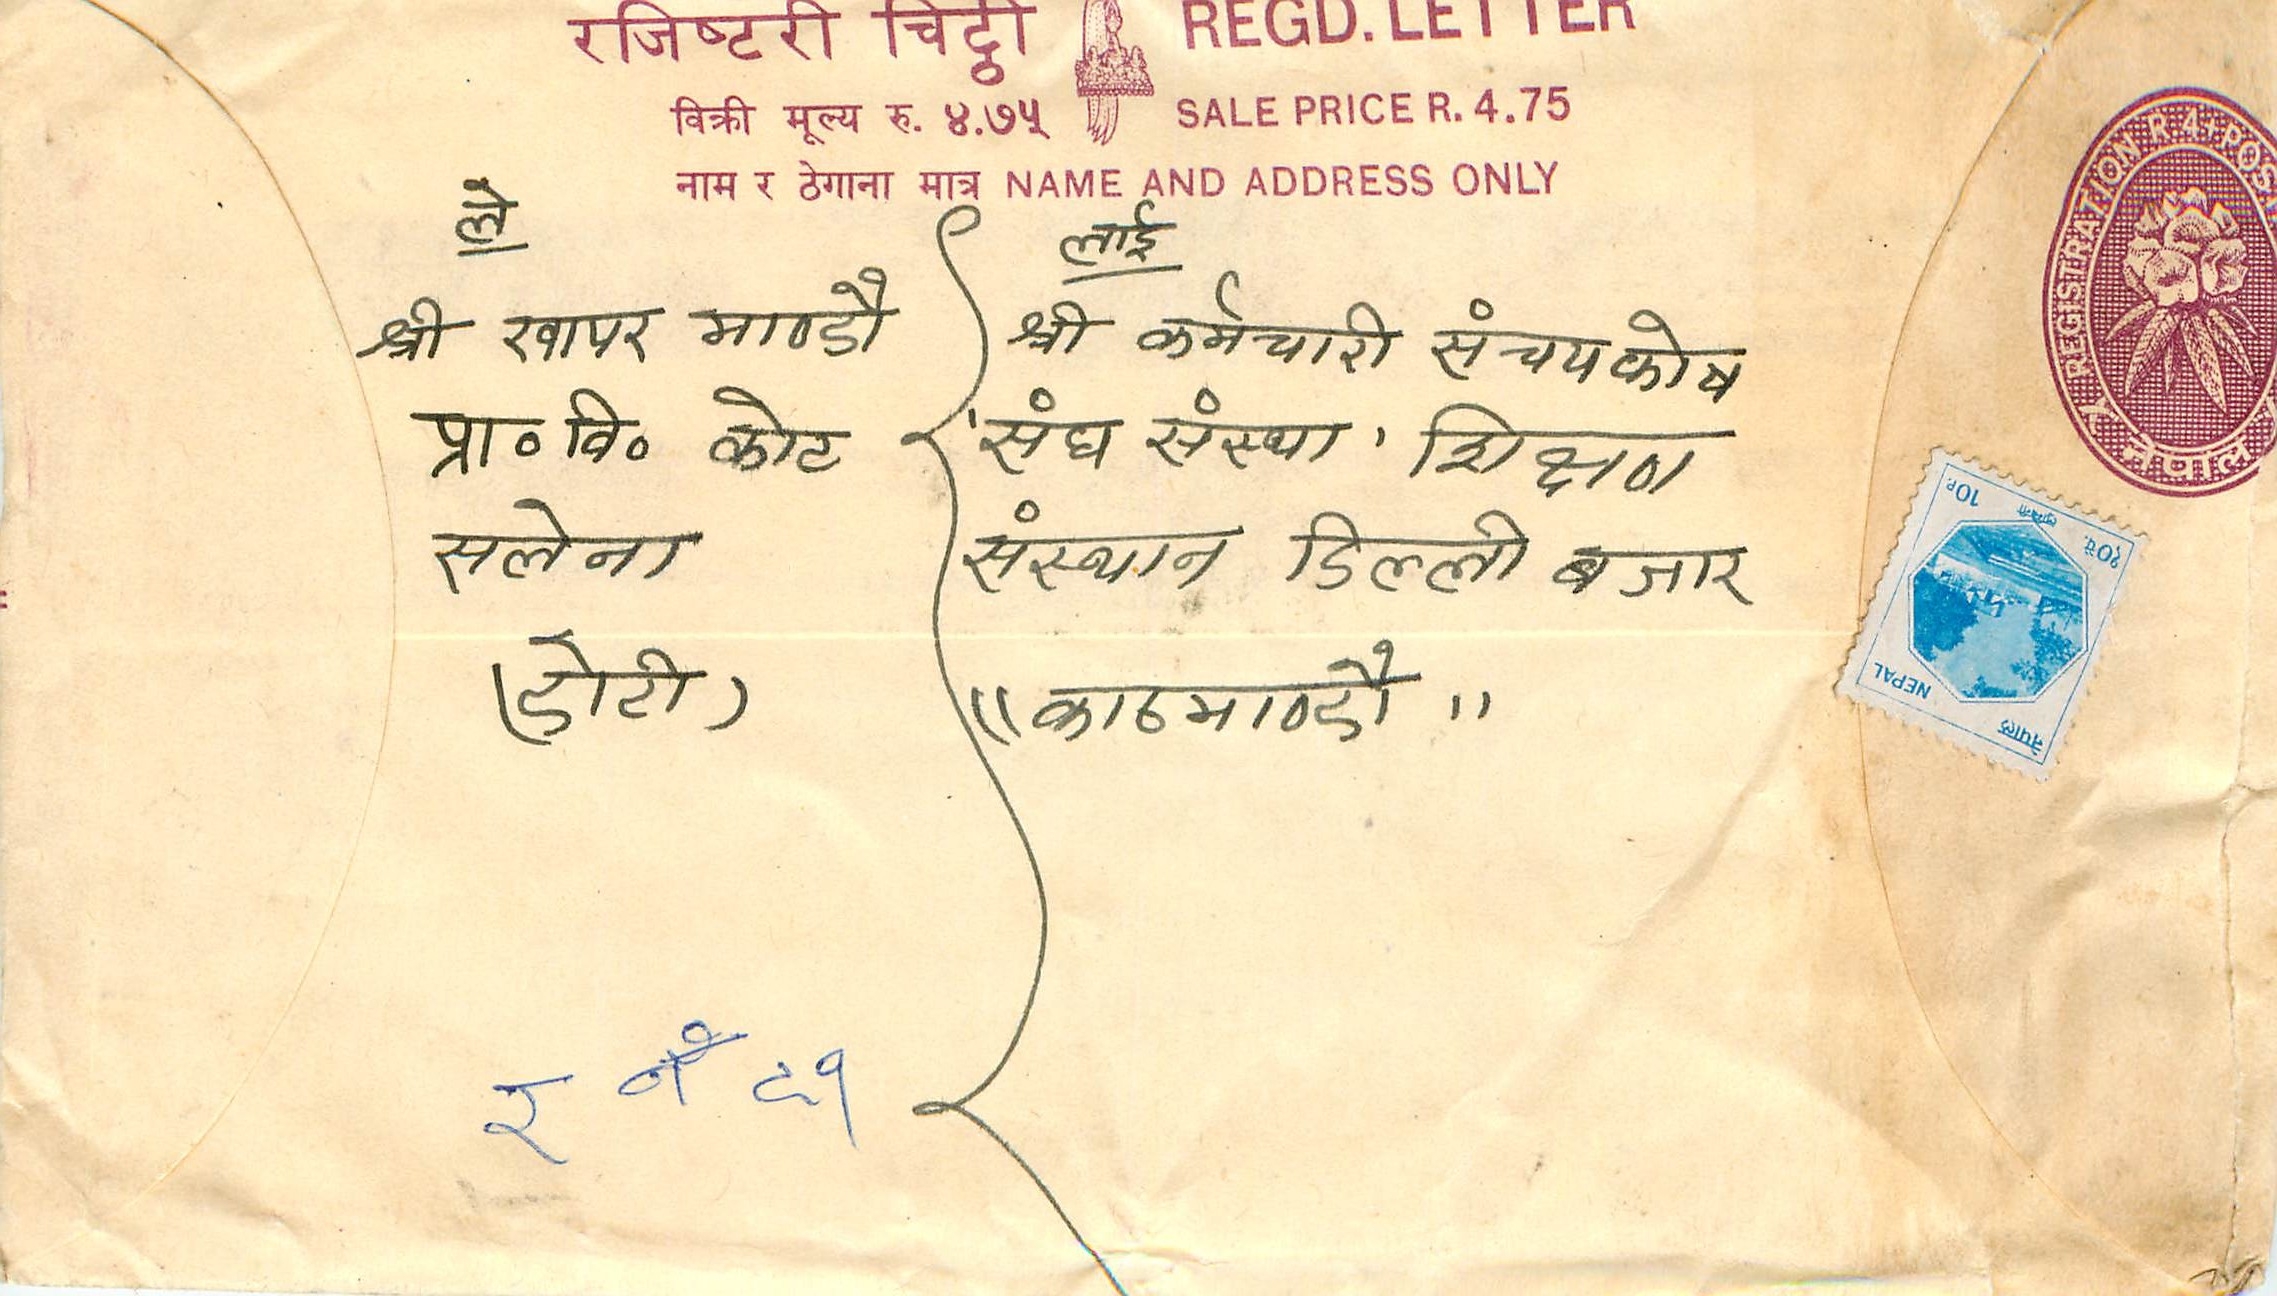 रजिष्टरी चिट्ठी REGD. LETTER
विक्री मूल्य रु. ४.७५ SALE PRICE R. 4.75
नाम र ठेगाना मात्र NAME AND ADDRESS ONLY
REGISTRATION R.4+POS
नेपाल
ले
श्री खापर माण्डौ
प्रा० वि० कोट
सलेना
(डोटी)
लाई
श्री कर्मचारी संचयकोष
'संघ संस्था' शिक्षण
संस्थान डिल्ली बजार
"काठमाण्डौ"
10P.
१०पै.
NEPAL
नेपाल
र नं ८१